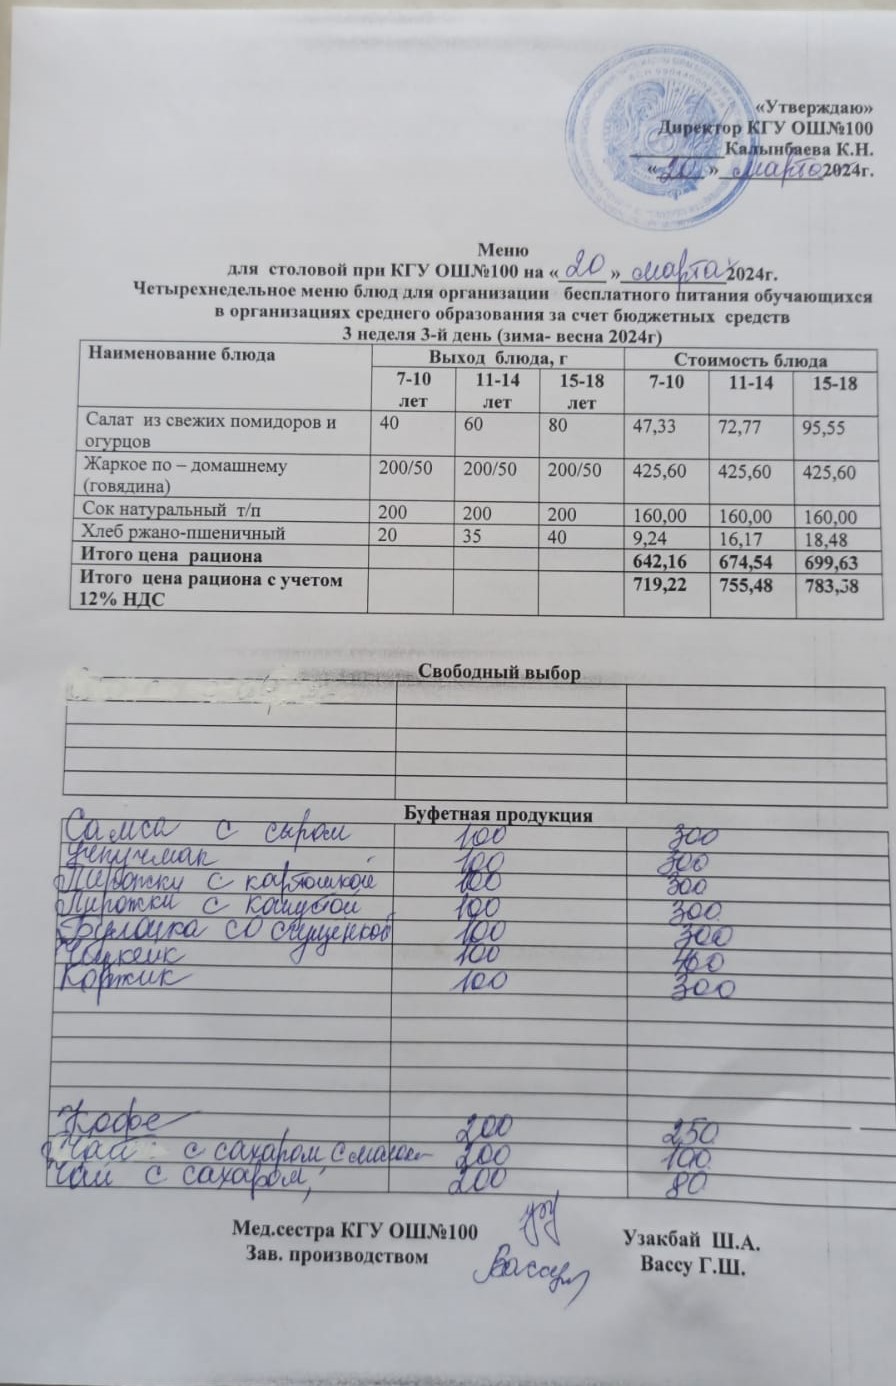 «Утверждаю»
Директор КГУ ОШ№100
____________Калынбаева К.Н.
«20»__марта__2024г.
Меню
для столовой при КГУ ОШ№100 на «_20_»_марта_2024г.
Четырехнедельное меню блюд для организации бесплатного питания обучающихся
в организациях среднего образования за счет бюджетных средств
3 неделя 3-й день (зима- весна 2024г)
Наименование блюда Выход блюда, г Стоимость блюда
7-10 лет 11-14 лет 15-18 лет 7-10 11-14 15-18
Салат из свежих помидоров и огурцов 40 60 80 47,33 72,77 95,55
Жаркое по – домашнему (говядина) 200/50 200/50 200/50 425,60 425,60 425,60
Сок натуральный т/п 200 200 200 160,00 160,00 160,00
Хлеб ржано-пшеничный 20 35 40 9,24 16,17 18,48
Итого цена рациона 642,16 674,54 699,63
Итого цена рациона с учетом 12% НДС 719,22 755,48 783,58
Свободный выбор
Буфетная продукция
Самса с сыром 100 300
Учпучмак 100 300
Пирожки с картошкой 100 300
Пирожки с капустой 100 300
Булочка со сгущенкой 100 300
Чизкейк 100 400
Коржик 100 300
Кофе 200 250
Чай с сахаром с молоком 200 100
Чай с сахаром, 200 80
Мед.сестра КГУ ОШ№100 Узакбай Ш.А.
Зав. производством Вассу Г.Ш.